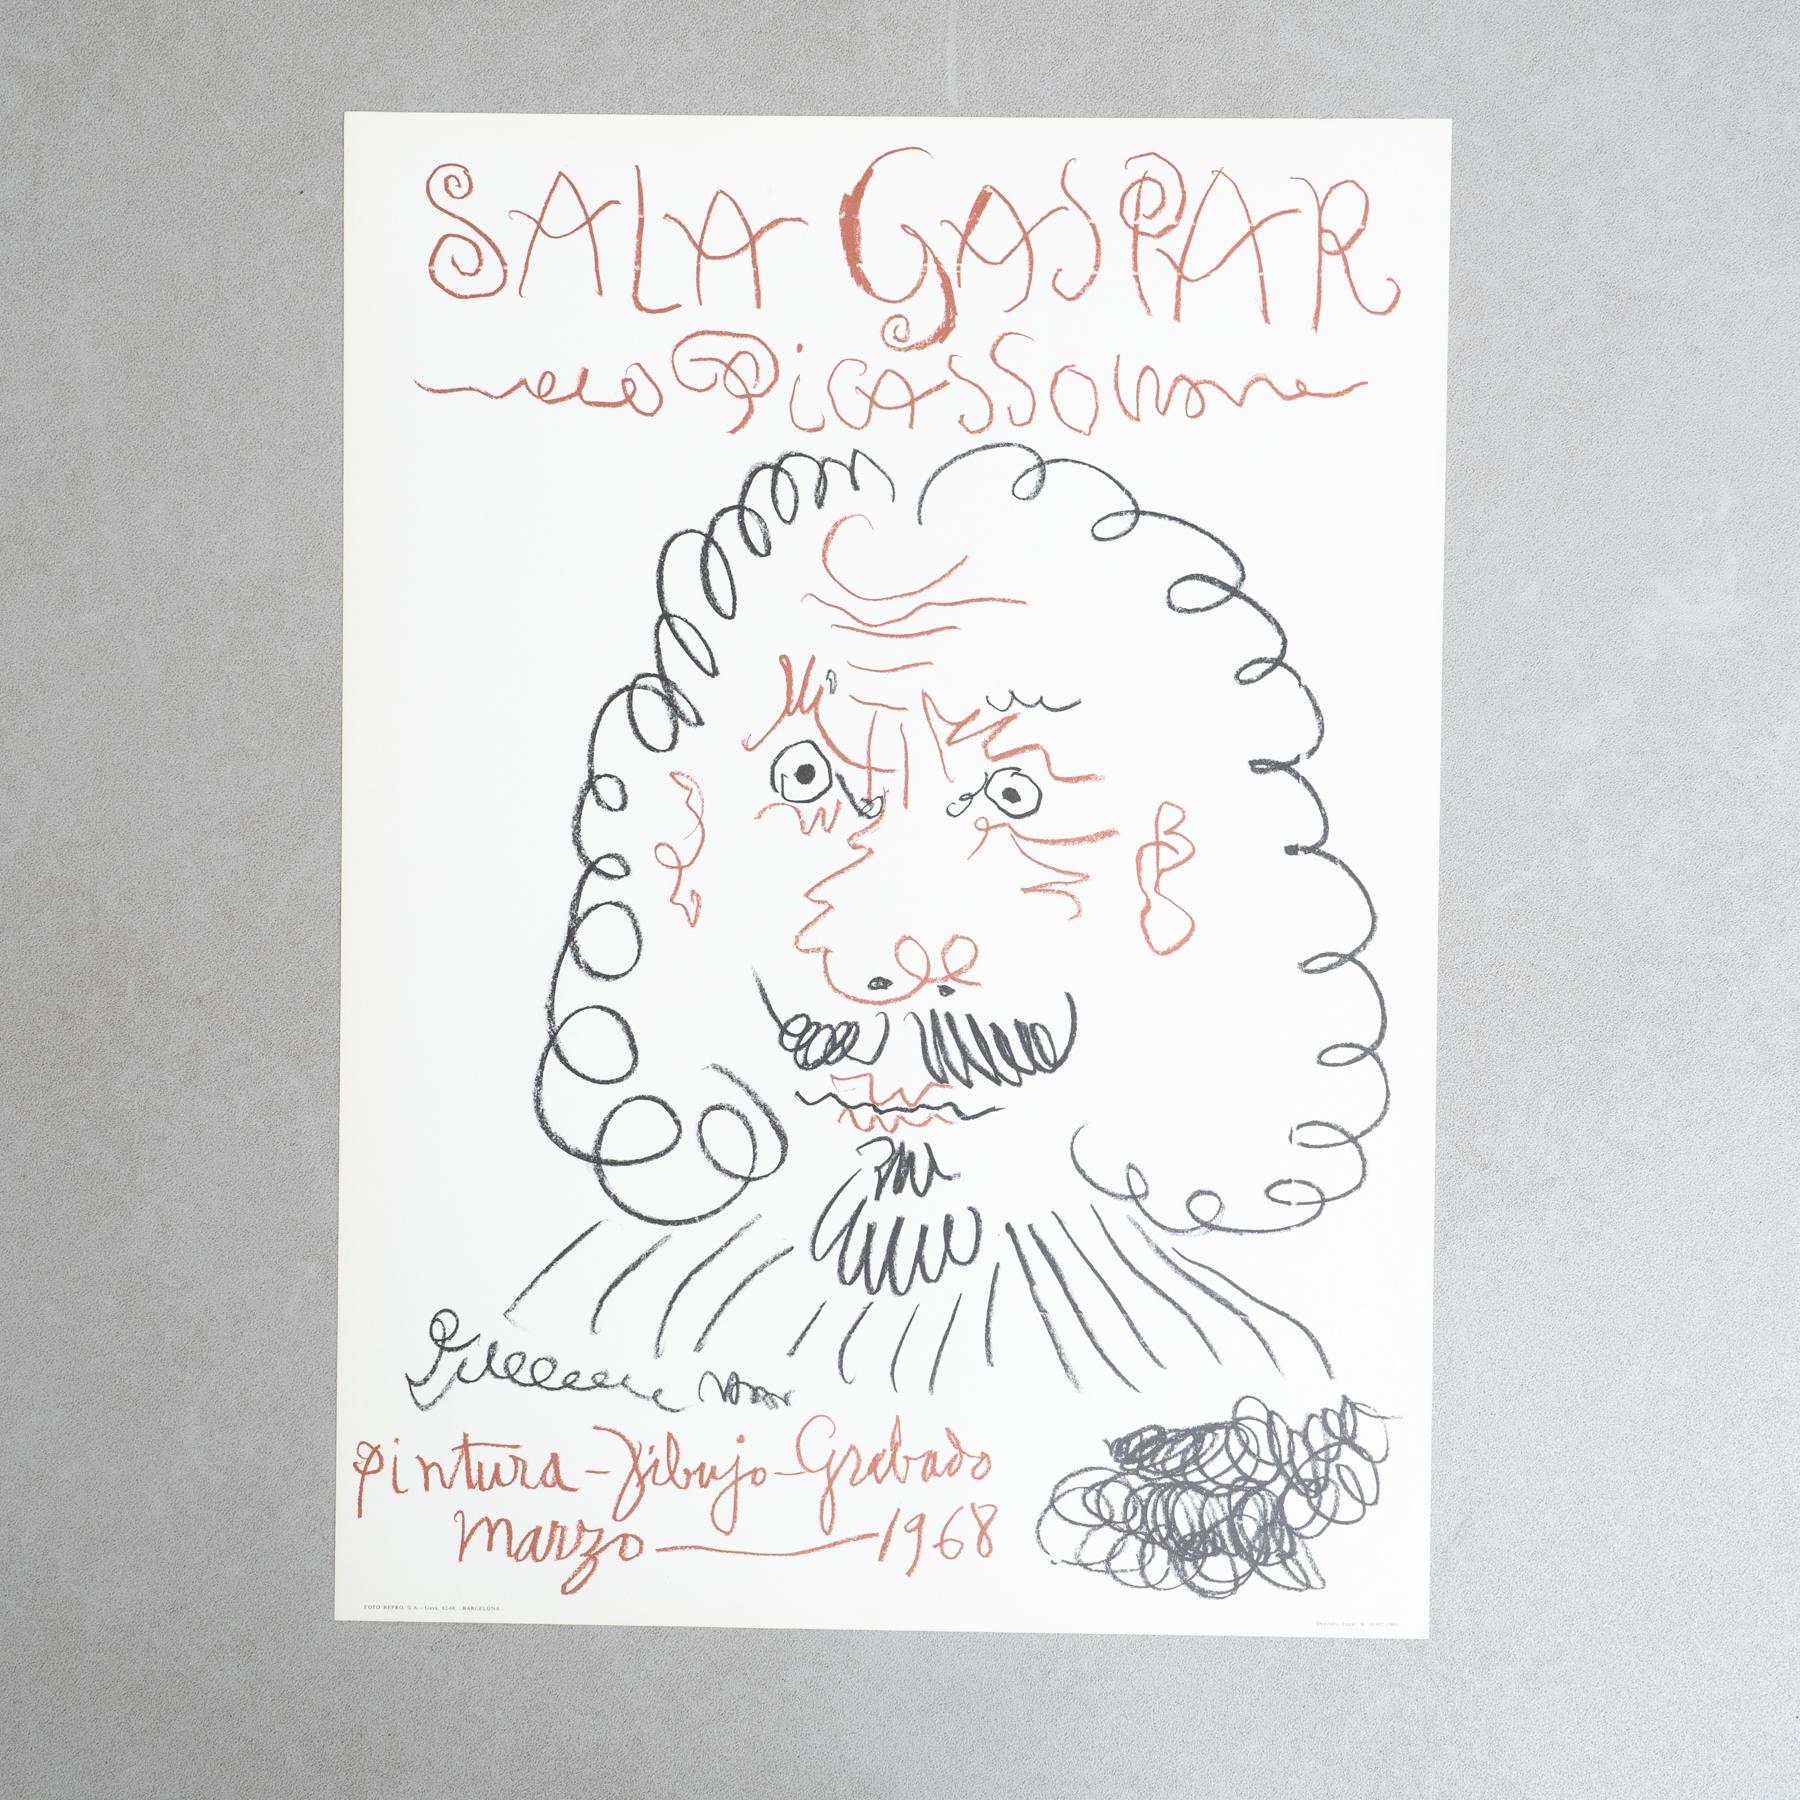 SALA GASPAR
Picasso
pintura-Dibujo-Grabado
Marzo—1968
FOTO REPRO, S.A. - Gavá, 62-68. BARCELONA
Depósito Legal: B.